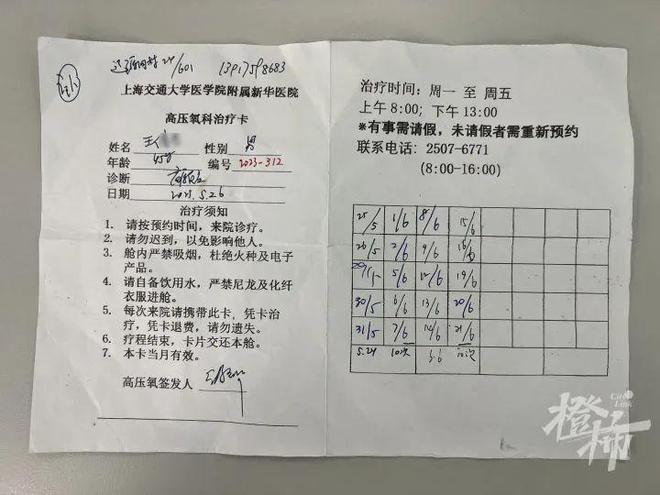 24/601 13917598683
上海交通大学医学院附属新华医院
高压氧科治疗卡
姓名 王 性别 男
年龄 45岁 编号 2023-312
诊断
日期 2023.5.26
治疗须知
1. 请按预约时间，来院诊疗。
2. 请勿迟到，以免影响他人。
3. 舱内严禁吸烟，杜绝火种及电子
产品。
4. 请自备饮用水，严禁尼龙及化纤
衣服进舱。
5. 每次来院请携带此卡，凭卡治
疗，凭卡退费，请勿遗失。
6. 疗程结束，卡片交还本舱。
7. 本卡当月有效。
高压氧签发人
治疗时间：周一 至 周五
上午 8:00；下午 13:00
*有事需请假，未请假者需重新预约
联系电话：2507-6771
(8:00-16:00)
25/5 1/6 8/6 15/6
26/5 2/6 9/6 16/6
29/5 5/6 12/6 19/6
30/5 6/6 13/6 20/6
31/5 7/6 14/6 21/6
5.24 10次 6.6 10次
橙柿